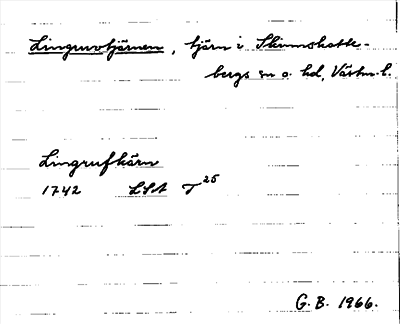 Lingruvtjärnen, tjärn i Skinnskatte-
bergs sn o. hd, Västm. l.
Lingrufkärn
1742 LSA T 25
G. B. 1966.